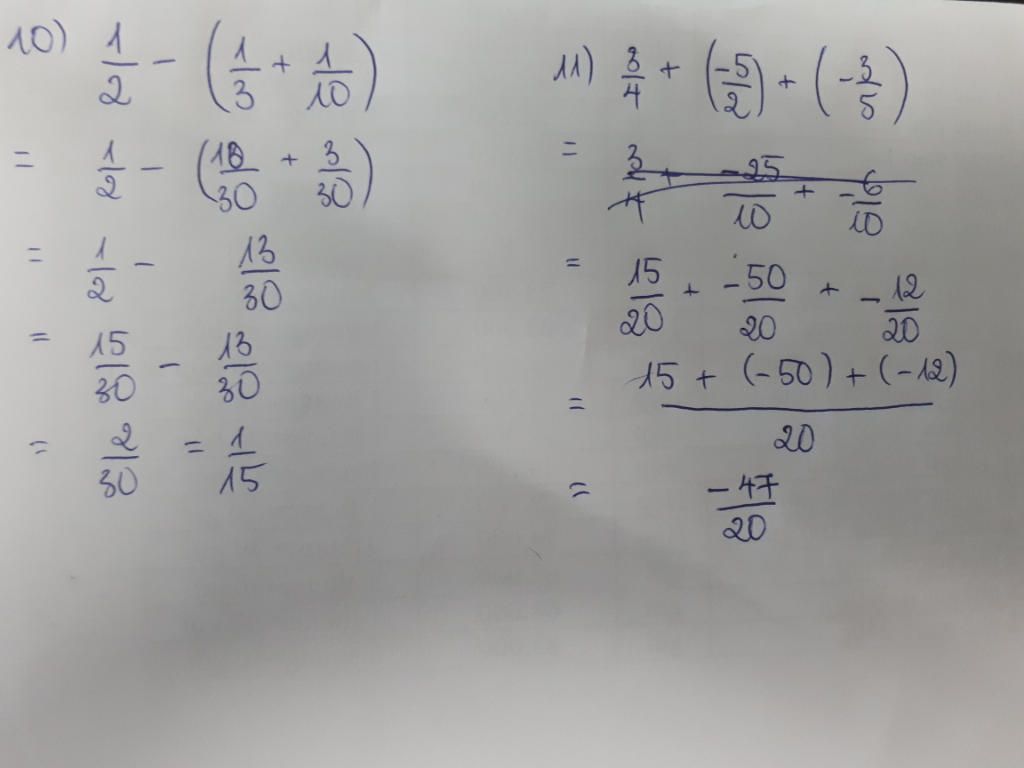 10) 1/2 - (1/3 + 1/10)
= 1/2 - (10/30 + 3/30)
= 1/2 - 13/30
= 15/30 - 13/30
= 2/30 = 1/15
11) 3/4 + (-5/2) + (-3/5)
= 3/4 + -25/10 + -6/10
= 15/20 + -50/20 + -12/20
= 15 + (-50) + (-12)/20
= -47/20